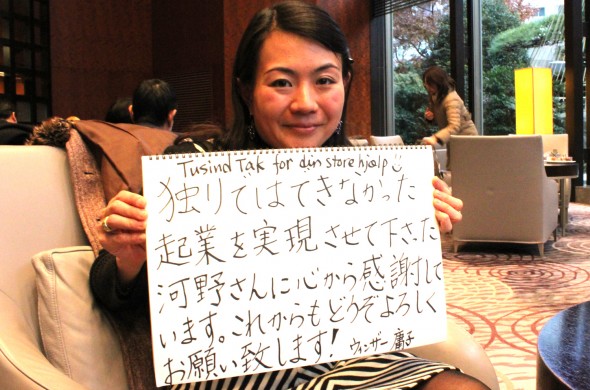 Tusind Tak for din store hjælp
独りではできなかった
起業を実現させて下さった
河野さんに心から感謝して
います。これからもどうぞよろしく
お願い致します!
ウィンザー庸子